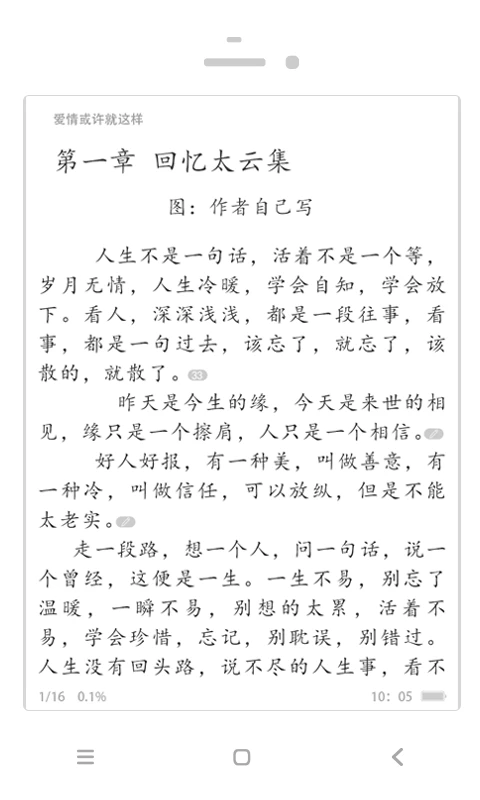 爱情或许就这样
第一章 回忆太云集
图：作者自己写
人生不是一句话，活着不是一个等，
岁月无情，人生冷暖，学会自知，学会放
下。看人，深深浅浅，都是一段往事，看
事，都是一句过去，该忘了，就忘了，该
散的，就散了。33
昨天是今生的缘，今天是来世的相
见，缘只是一个擦肩，人只是一个相信。
好人好报，有一种美，叫做善意，有
一种冷，叫做信任，可以放纵，但是不能
太老实。
走一段路，想一个人，问一句话，说一
个曾经，这便是一生。一生不易，别忘了
温暖，一瞬不易，别想的太累，活着不
易，学会珍惜，忘记，别耽误，别错过。
人生没有回头路，说不尽的人生事，看不
1/16 0.1% 10：05